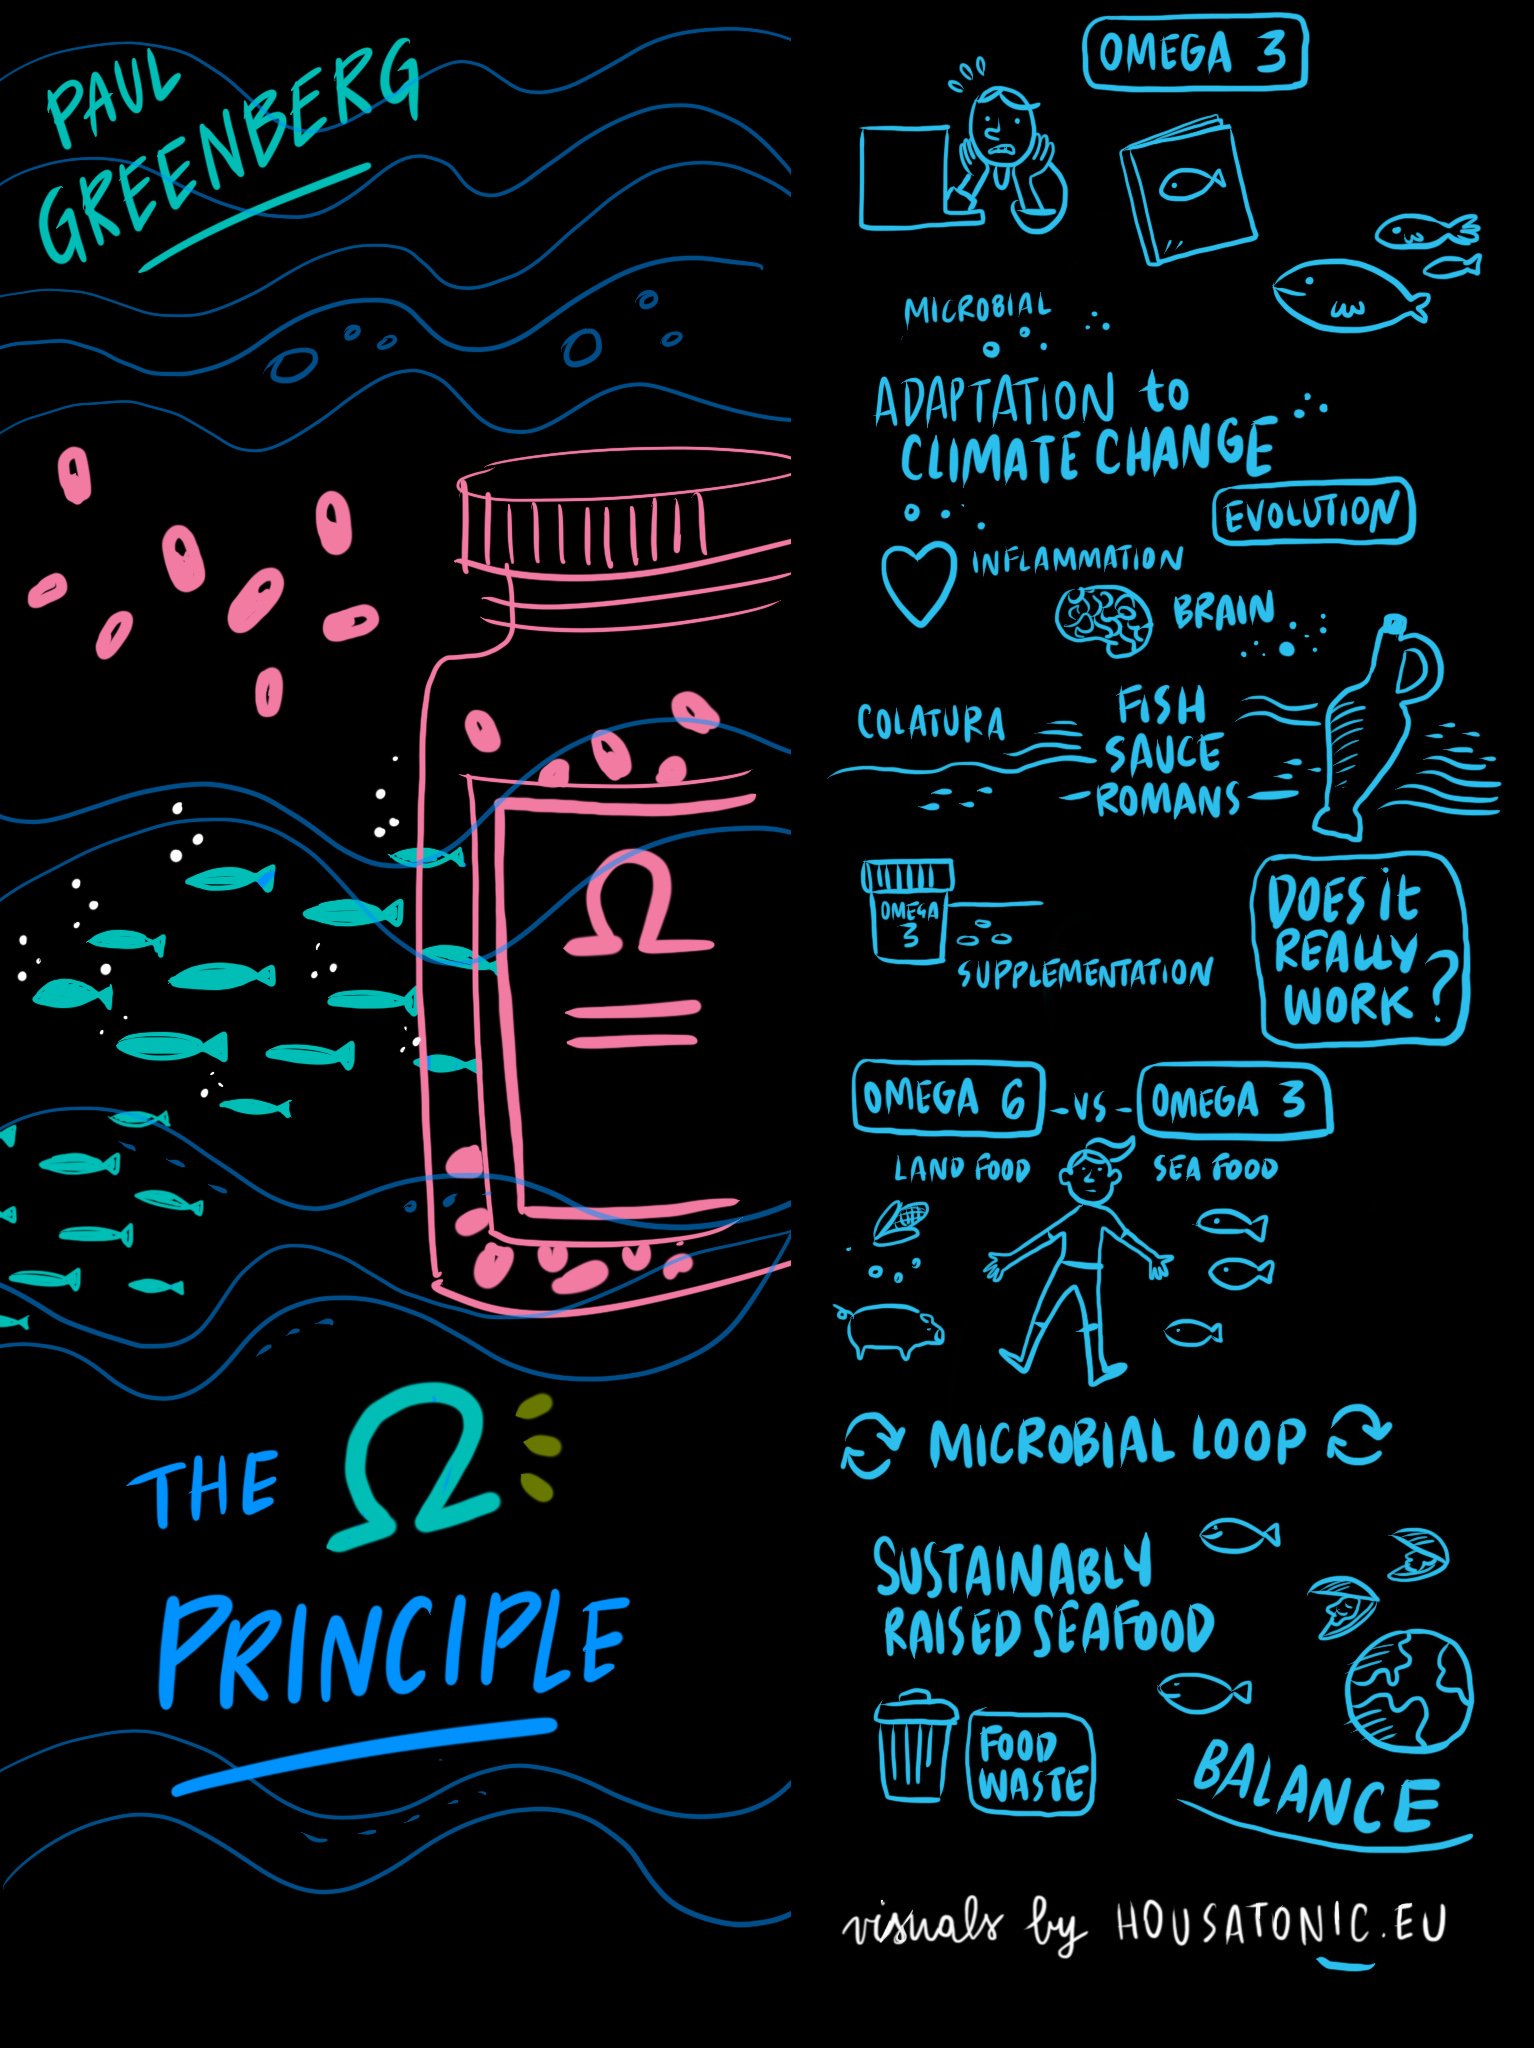 PAUL
GREENBERG
Ω
THE Ω
PRINCIPLE
OMEGA 3
MICROBIAL
ADAPTATION to
CLIMATE CHANGE
EVOLUTION
INFLAMMATION
BRAIN
COLATURA
FISH
SAUCE
ROMANS
OMEGA
3
SUPPLEMENTATION
DOES it
REALLY
WORK?
OMEGA 6 - VS - OMEGA 3
LAND FOOD
SEA FOOD
MICROBIAL LOOP
SUSTAINABLY
RAISED SEAFOOD
FOOD
WASTE
BALANCE
visuals by HOUSATONIC.EU